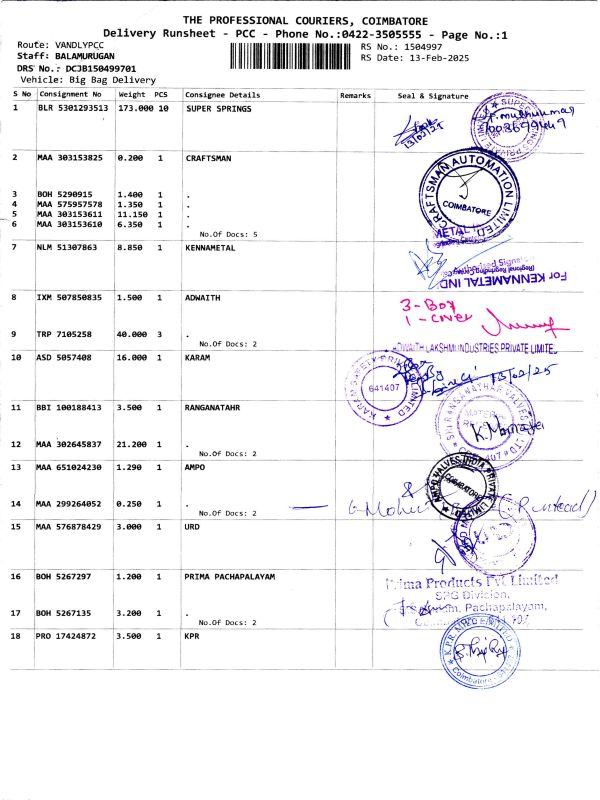 THE PROFESSIONAL COURIERS, COIMBATORE
Delivery Runsheet - PCC - Phone No.:0422-3505555 - Page No.:1
Route: VANDLYPCC RS No.: 1504997
Staff: BALAMURUGAN RS Date: 13-Feb-2025
DRS No.: DCJB150499701
Vehicle: Big Bag Delivery
S No Consignment No Weight PCS Consignee Details Remarks Seal & Signature
1 BLR 5301293513 173.000 10 SUPER SPRINGS
13/02/25
2 MAA 303153825 0.200 1 CRAFTSMAN
CRAFTSMAN AUTOMATION LIMITED
COIMBATORE
3 BOH 5290915 1.400 1 .
4 MAA 575957578 1.350 1 .
5 MAA 303153611 11.150 1 .
6 MAA 303153610 6.350 1 .
No.Of Docs: 5
7 NLM 51307863 8.850 1 KENNAMETAL
For KENNAMETAL IND
8 IXM 507850835 1.500 1 ADWAITH
3-Box
1-cover
9 TRP 7105258 40.000 3 .
No.Of Docs: 2
ADWAITH LAKSHMI INDUSTRIES PRIVATE LIMITE
10 ASD 5057408 16.000 1 KARAM
641407
13/02/25
11 BBI 100188413 3.500 1 RANGANATAHR
12 MAA 302645837 21.200 1 .
No.Of Docs: 2
13 MAA 651024230 1.290 1 AMPO
AMPO VALVES INDIA PRIVATE LIMITED
COIMBATORE
14 MAA 299264052 0.250 1 .
No.Of Docs: 2
15 MAA 576878429 3.000 1 URD
16 BOH 5267297 1.200 1 PRIMA PACHAPALAYAM
Prima Products Pvt Limited
SPG Division,
Pachapalayam,
17 BOH 5267135 3.200 1 .
No.Of Docs: 2
18 PRO 17424872 3.500 1 KPR